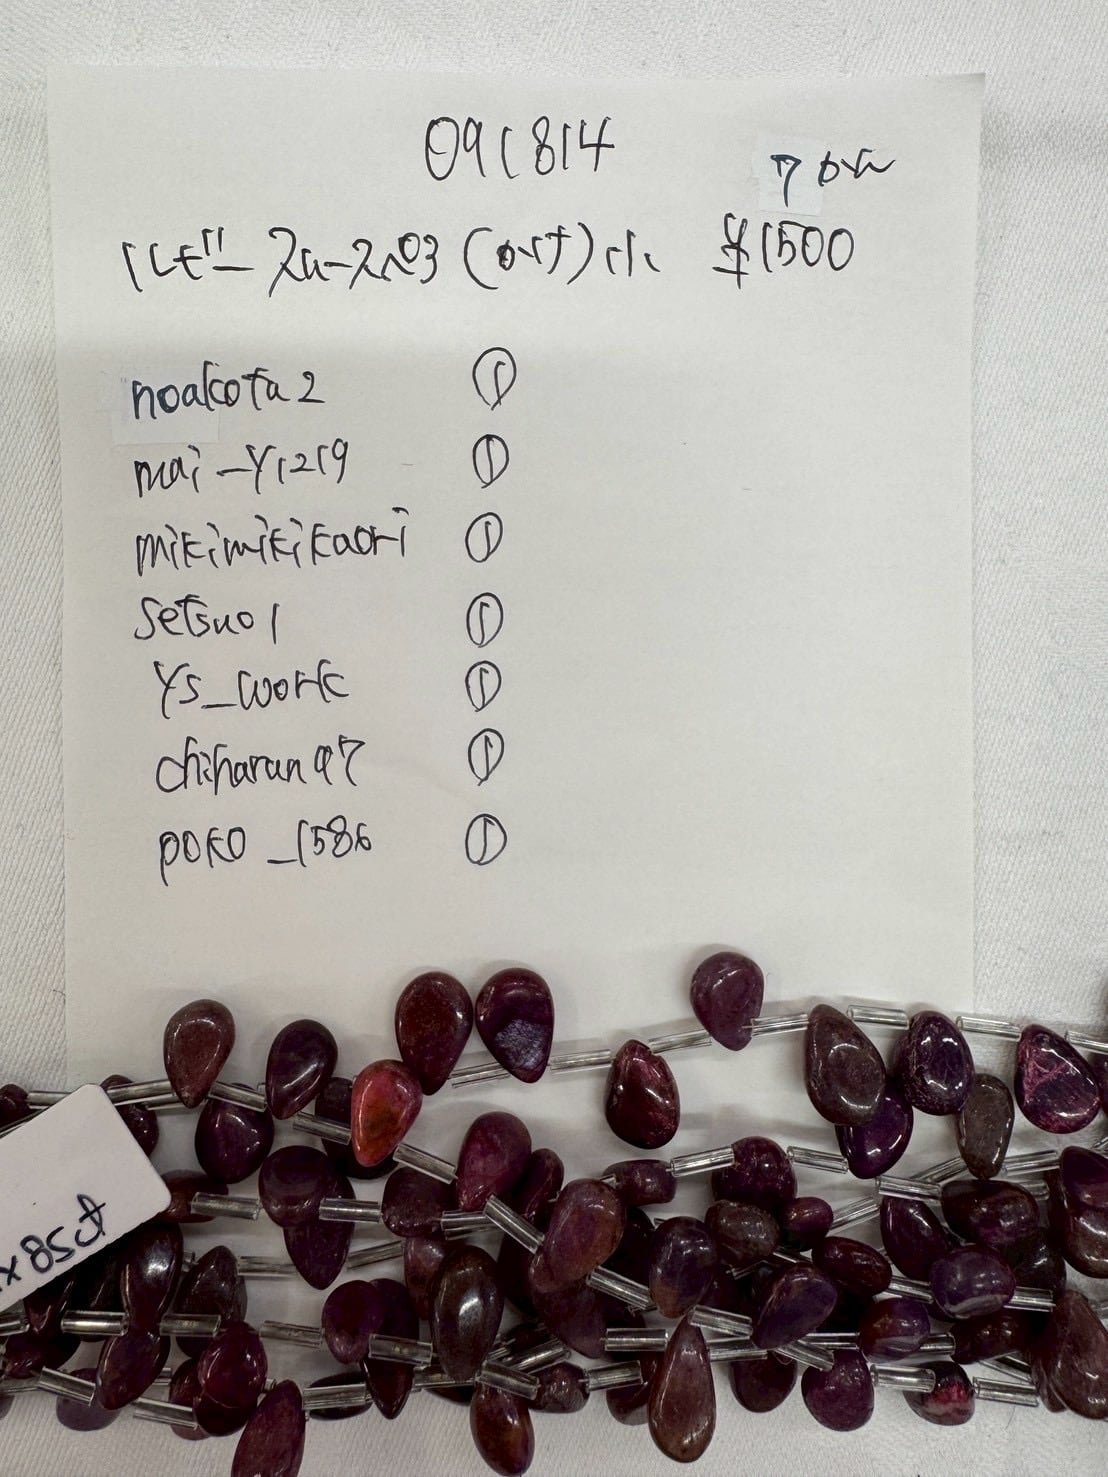 091814
7
ルビー ¥1500
noakota2 ①
mai_y1219 ①
mikimikikaori ①
setsuo1 ①
ys_work ①
chiharun97 ①
poko_1586 ①